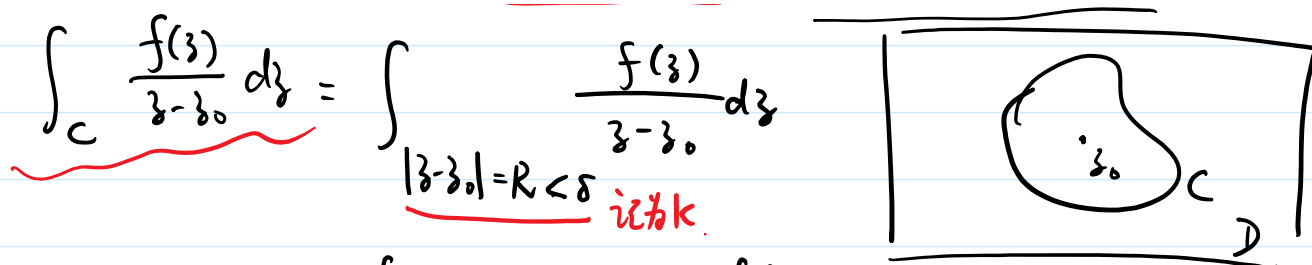 ∫_C f(z)/(z-z₀) dz = ∫_{|z-z₀|=R<δ} f(z)/(z-z₀) dz
记为K.
z₀
C
D